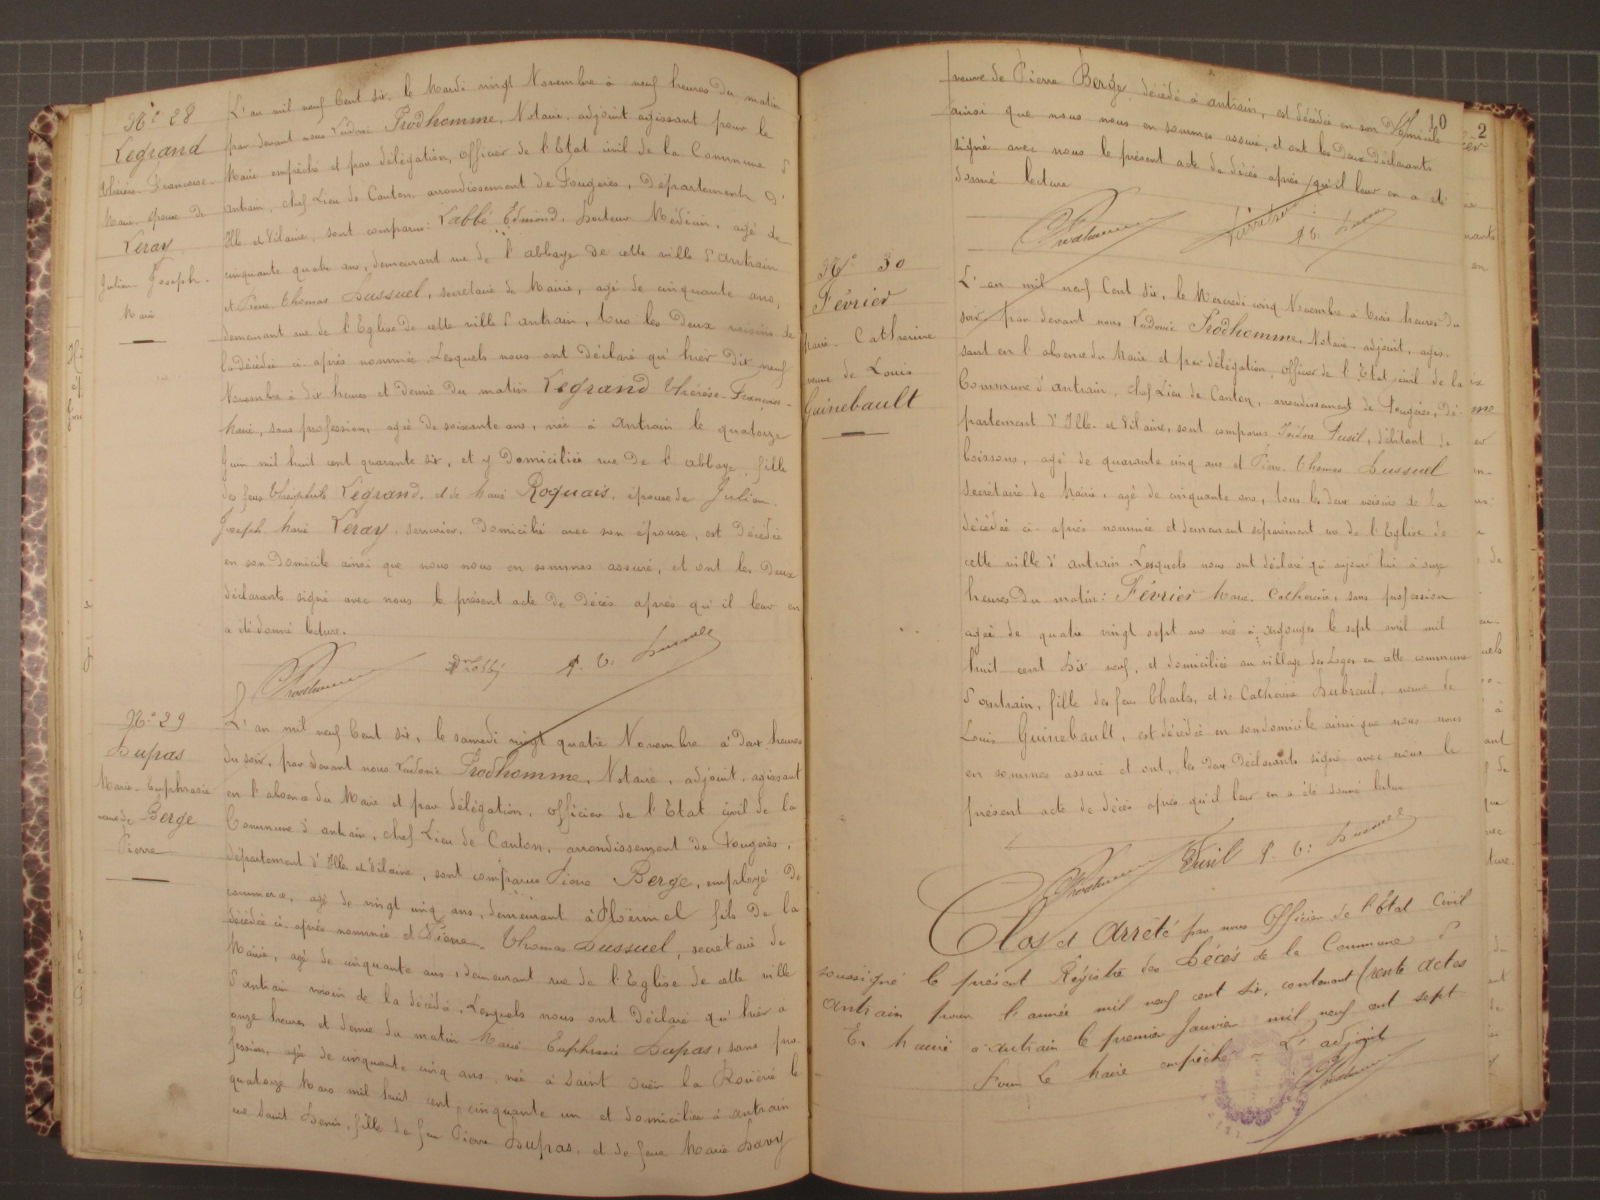 N° 28
Legrand
Thérèse-Françoise-
Marie, épouse de
Leray
Julien-Joseph-
Marie
L'an mil neuf Cent six, le Mardi vingt Novembre à neuf heures du matin
par devant nous Ludovic Prodhomme, Notaire, adjoint agissant pour le
Maire empêché et par délégation, officier de l'Etat civil de la Commune d'
antrain, chef Lieu de Canton, arrondissement de Fougères, Département d'
Ille et Vilaine, sont comparus: Labbé Edmond, Docteur Médecin, agé de
cinquante quatre ans, demeurant rue de l'abbaye de cette ville d'antrain
et Pierre Thomas Dussuel, secrétaire de Mairie, agé de cinquante ans,
demeurant rue de l'Eglise de cette ville d'antrain, tous les deux voisins de
la décédée ci-après nommée. Lesquels nous ont déclaré qu'hier dix neuf
Novembre à dix heures et demie du matin Legrand Thérèse-Françoise-
Marie, sans profession, agée de soixante ans, née à antrain le quatorze
Juin mil huit cent quarante six, et y domiciliée rue de l'abbaye, fille
des feus Théophile Legrand, et de Marie Roquais, épouse de Julien
Joseph Marie Leray, serrurier, domicilié avec son épouse, est décédée
en son domicile ainsi que nous nous en sommes assuré, et ont les deux
déclarants signé avec nous le présent acte de décès après qu'il leur en
a été donné lecture.
Prodhomme Dr Labbé P. T. Dussuel
N° 29
Dupas
Marie-Euphrasie
veuve de Berge
Pierre
L'an mil neuf Cent six, le samedi vingt quatre Novembre à deux heures
du soir, par devant nous Ludovic Prodhomme, Notaire, adjoint, agissant
en l'absence du Maire et par délégation, officier de l'Etat civil de la
Commune d'antrain, chef Lieu de Canton, arrondissement de Fougères,
département d'Ille et Vilaine, sont comparus Pierre Berge, employé de
commerce, agé de vingt cinq ans, demeurant à Ploërmel fils de la
décédée ci-après nommée et Pierre-Thomas Dussuel, secrétaire de
Mairie, agé de cinquante ans, demeurant rue de l'Eglise de cette ville
d'antrain voisin de la décédée, Lesquels nous ont déclaré qu'hier à
onze heures et demie du matin Marie Euphrasie Dupas, sans pro-
fession, agée de cinquante cinq ans, née à Saint Ouën la Rouërie le
quatorze Mars mil huit cent cinquante un et domiciliée à antrain
rue Saint Denis, fille de feu Pierre Dupas, et de feue Marie Davy
10
2
veuve de Pierre Berge, décédé à antrain, est décédée en son domicile
ainsi que nous nous en sommes assuré, et ont les deux déclarants
signé avec nous le présent acte de décès après qu'il leur en a été
donné lecture
Prodhomme P. T. Dussuel
N° 30
Février
Marie-Catherine
veuve de Louis
Guinebault
L'an mil neuf Cent six, le Mercredi cinq Novembre à trois heures du
soir, par devant nous Ludovic Prodhomme, Notaire, adjoint, agis-
sant en l'absence du Maire et par délégation, officier de l'Etat civil de la
Commune d'antrain, chef Lieu de Canton, arrondissement de Fougères, Dé-
partement d'Ille et Vilaine, sont comparus Isidore Fusil, débitant de
boissons, agé de quarante cinq ans et Pierre-Thomas Dussuel
secrétaire de Mairie, agé de cinquante ans, tous les deux voisins de la
décédée ci-après nommée et demeurant séparément rue de l'Eglise de
cette ville d'antrain. Lesquels nous ont déclaré qu'aujourd'hui à onze
heures du matin: Février Marie Catherine, sans profession
agée de quatre vingt sept ans née à argouges le sept avril mil
huit cent dix neuf, et domiciliée au village des Loges en cette commune
d'antrain, fille des feus Charles, et de Catherine Dubreuil, veuve de
Louis Guinebault, est décédée en son domicile ainsi que nous nous
en sommes assuré et ont, les deux Déclarants signé avec nous le
présent acte de décès après qu'il leur en a été donné lecture
Prodhomme Fusil P. T. Dussuel
Clos et Arrêté par nous Officier de l'Etat Civil
soussigné le présent Registre des Décès de la Commune d'
Antrain pour l'année mil neuf cent six, contenant trente actes
En Mairie à Antrain le premier Janvier mil neuf cent sept
Pour le Maire empêché - L'adjoint
Prodhomme